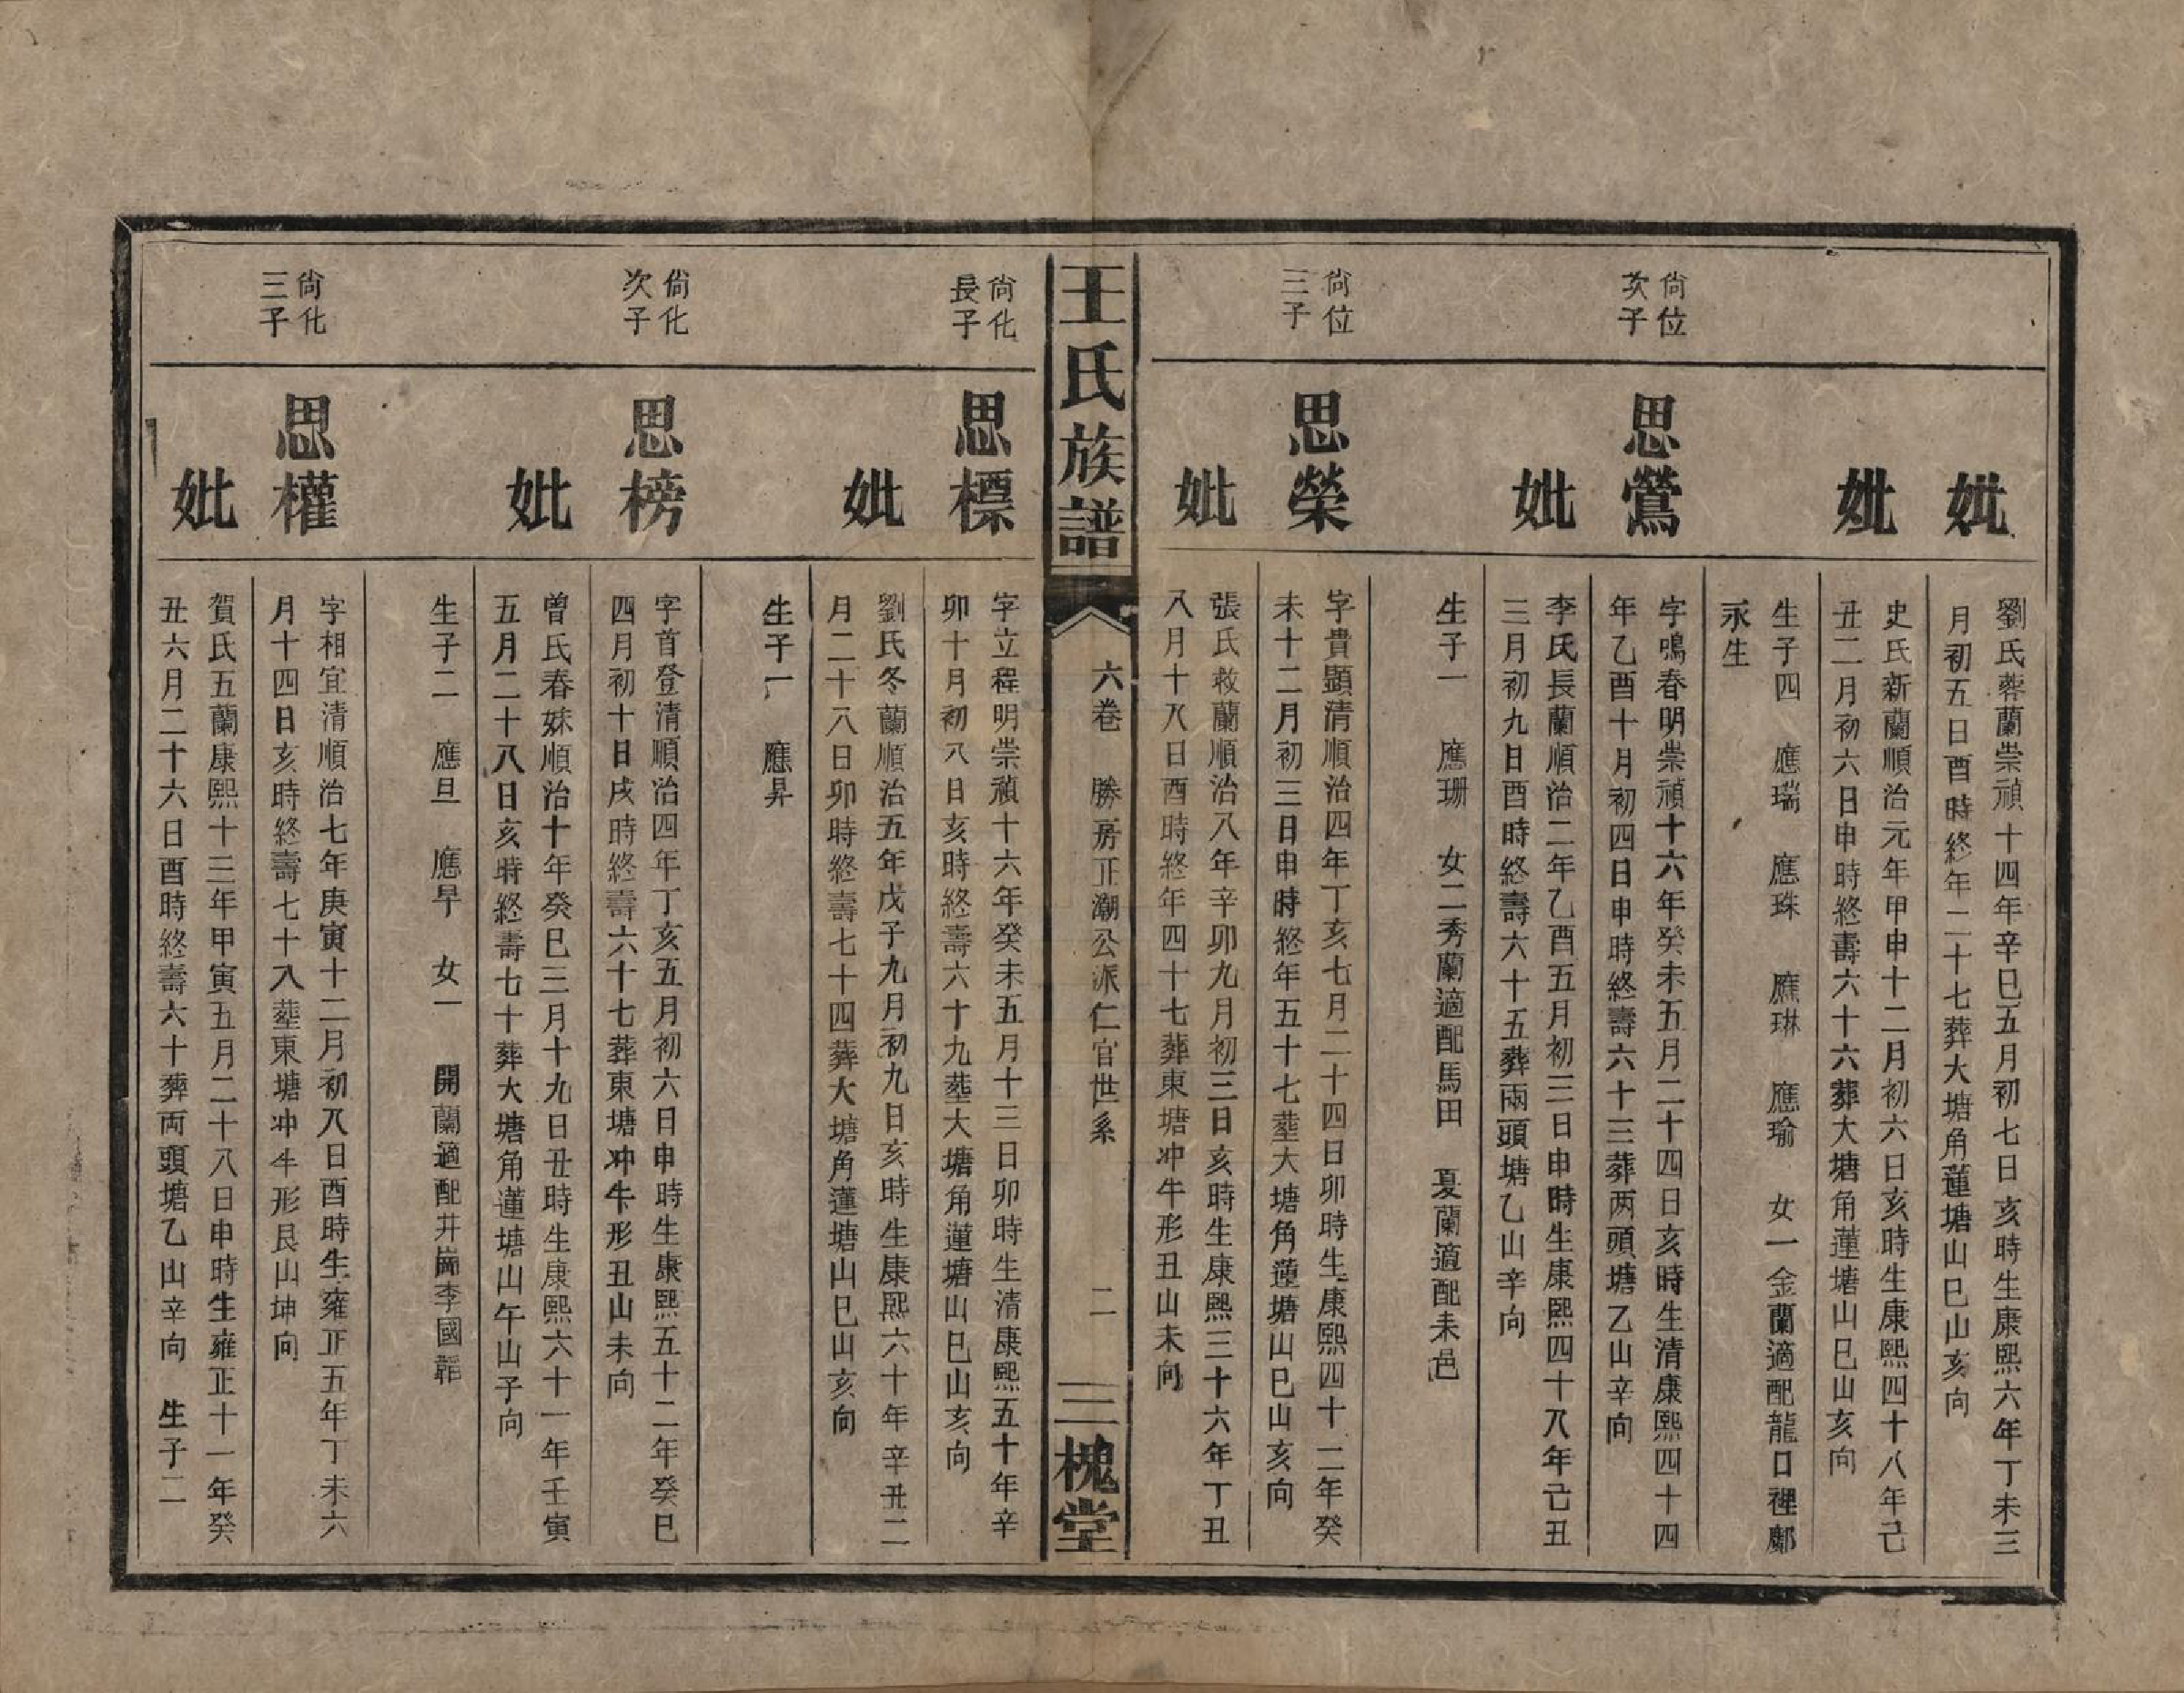 妣
劉氏蓉蘭崇禎十四年辛巳五月初七日亥時生康熙六年丁未三
月初五日酉時終年二十七葬大塘角蓮塘山巳山亥向
妣
史氏新蘭順治元年甲申十二月初六日亥時生康熙四十八年己
丑二月初六日申時終壽六十六葬大塘角蓮塘山巳山亥向
生子四 應瑞 應珠 應琳 應瑜 女一金蘭適配龍口裡鄺
永生
尙位
次子
思鶯
字鳴春明崇禎十六年癸未五月二十四日亥時生清康熙四十四
年乙酉十月初四日申時終壽六十三葬兩頭塘乙山辛向
妣
李氏長蘭順治二年乙酉五月初三日申時生康熙四十八年己丑
三月初九日酉時終壽六十五葬兩頭塘乙山辛向
生子一 應珊 女二秀蘭適配馬田 夏蘭適配耒邑
尙位
三子
思榮
字貴顯清順治四年丁亥七月二十四日卯時生康熙四十二年癸
未十二月初三日申時終年五十七塟大塘角蓮塘山巳山亥向
妣
張氏救蘭順治八年辛卯九月初三日亥時生康熙三十六年丁丑
八月十八日酉時終年四十七葬東塘冲牛形丑山未向
王氏族譜
六卷 勝房正潮公派仁官世系 二
三槐堂
尙化
長子
思標
字立程明崇禎十六年癸未五月十三日卯時生清康熙五十年辛
卯十月初八日亥時終壽六十九塟大塘角蓮塘山巳山亥向
妣
劉氏冬蘭順治五年戊子九月初九日亥時生康熙六十年辛丑二
月二十八日卯時終壽七十四葬大塘角蓮塘山巳山亥向
生子一 應昇
尙化
次子
思榜
字首登清順治四年丁亥五月初六日申時生康熙五十二年癸巳
四月初十日戌時終壽六十七葬東塘冲牛形丑山未向
妣
曾氏春妹順治十年癸巳三月十九日丑時生康熙六十一年壬寅
五月二十八日亥時終壽七十葬大塘角蓮塘山午山子向
生子二 應旦 應早 女一 開蘭適配井崗李國
尙化
三子
思權
字相宜清順治七年庚寅十二月初八日酉時生雍正五年丁未六
月十四日亥時終壽七十八塟東塘冲牛形艮山坤向
妣
賀氏五蘭康熙十三年甲寅五月二十八日申時生雍正十一年癸
丑六月二十六日酉時終壽六十葬兩頭塘乙山辛向 生子二